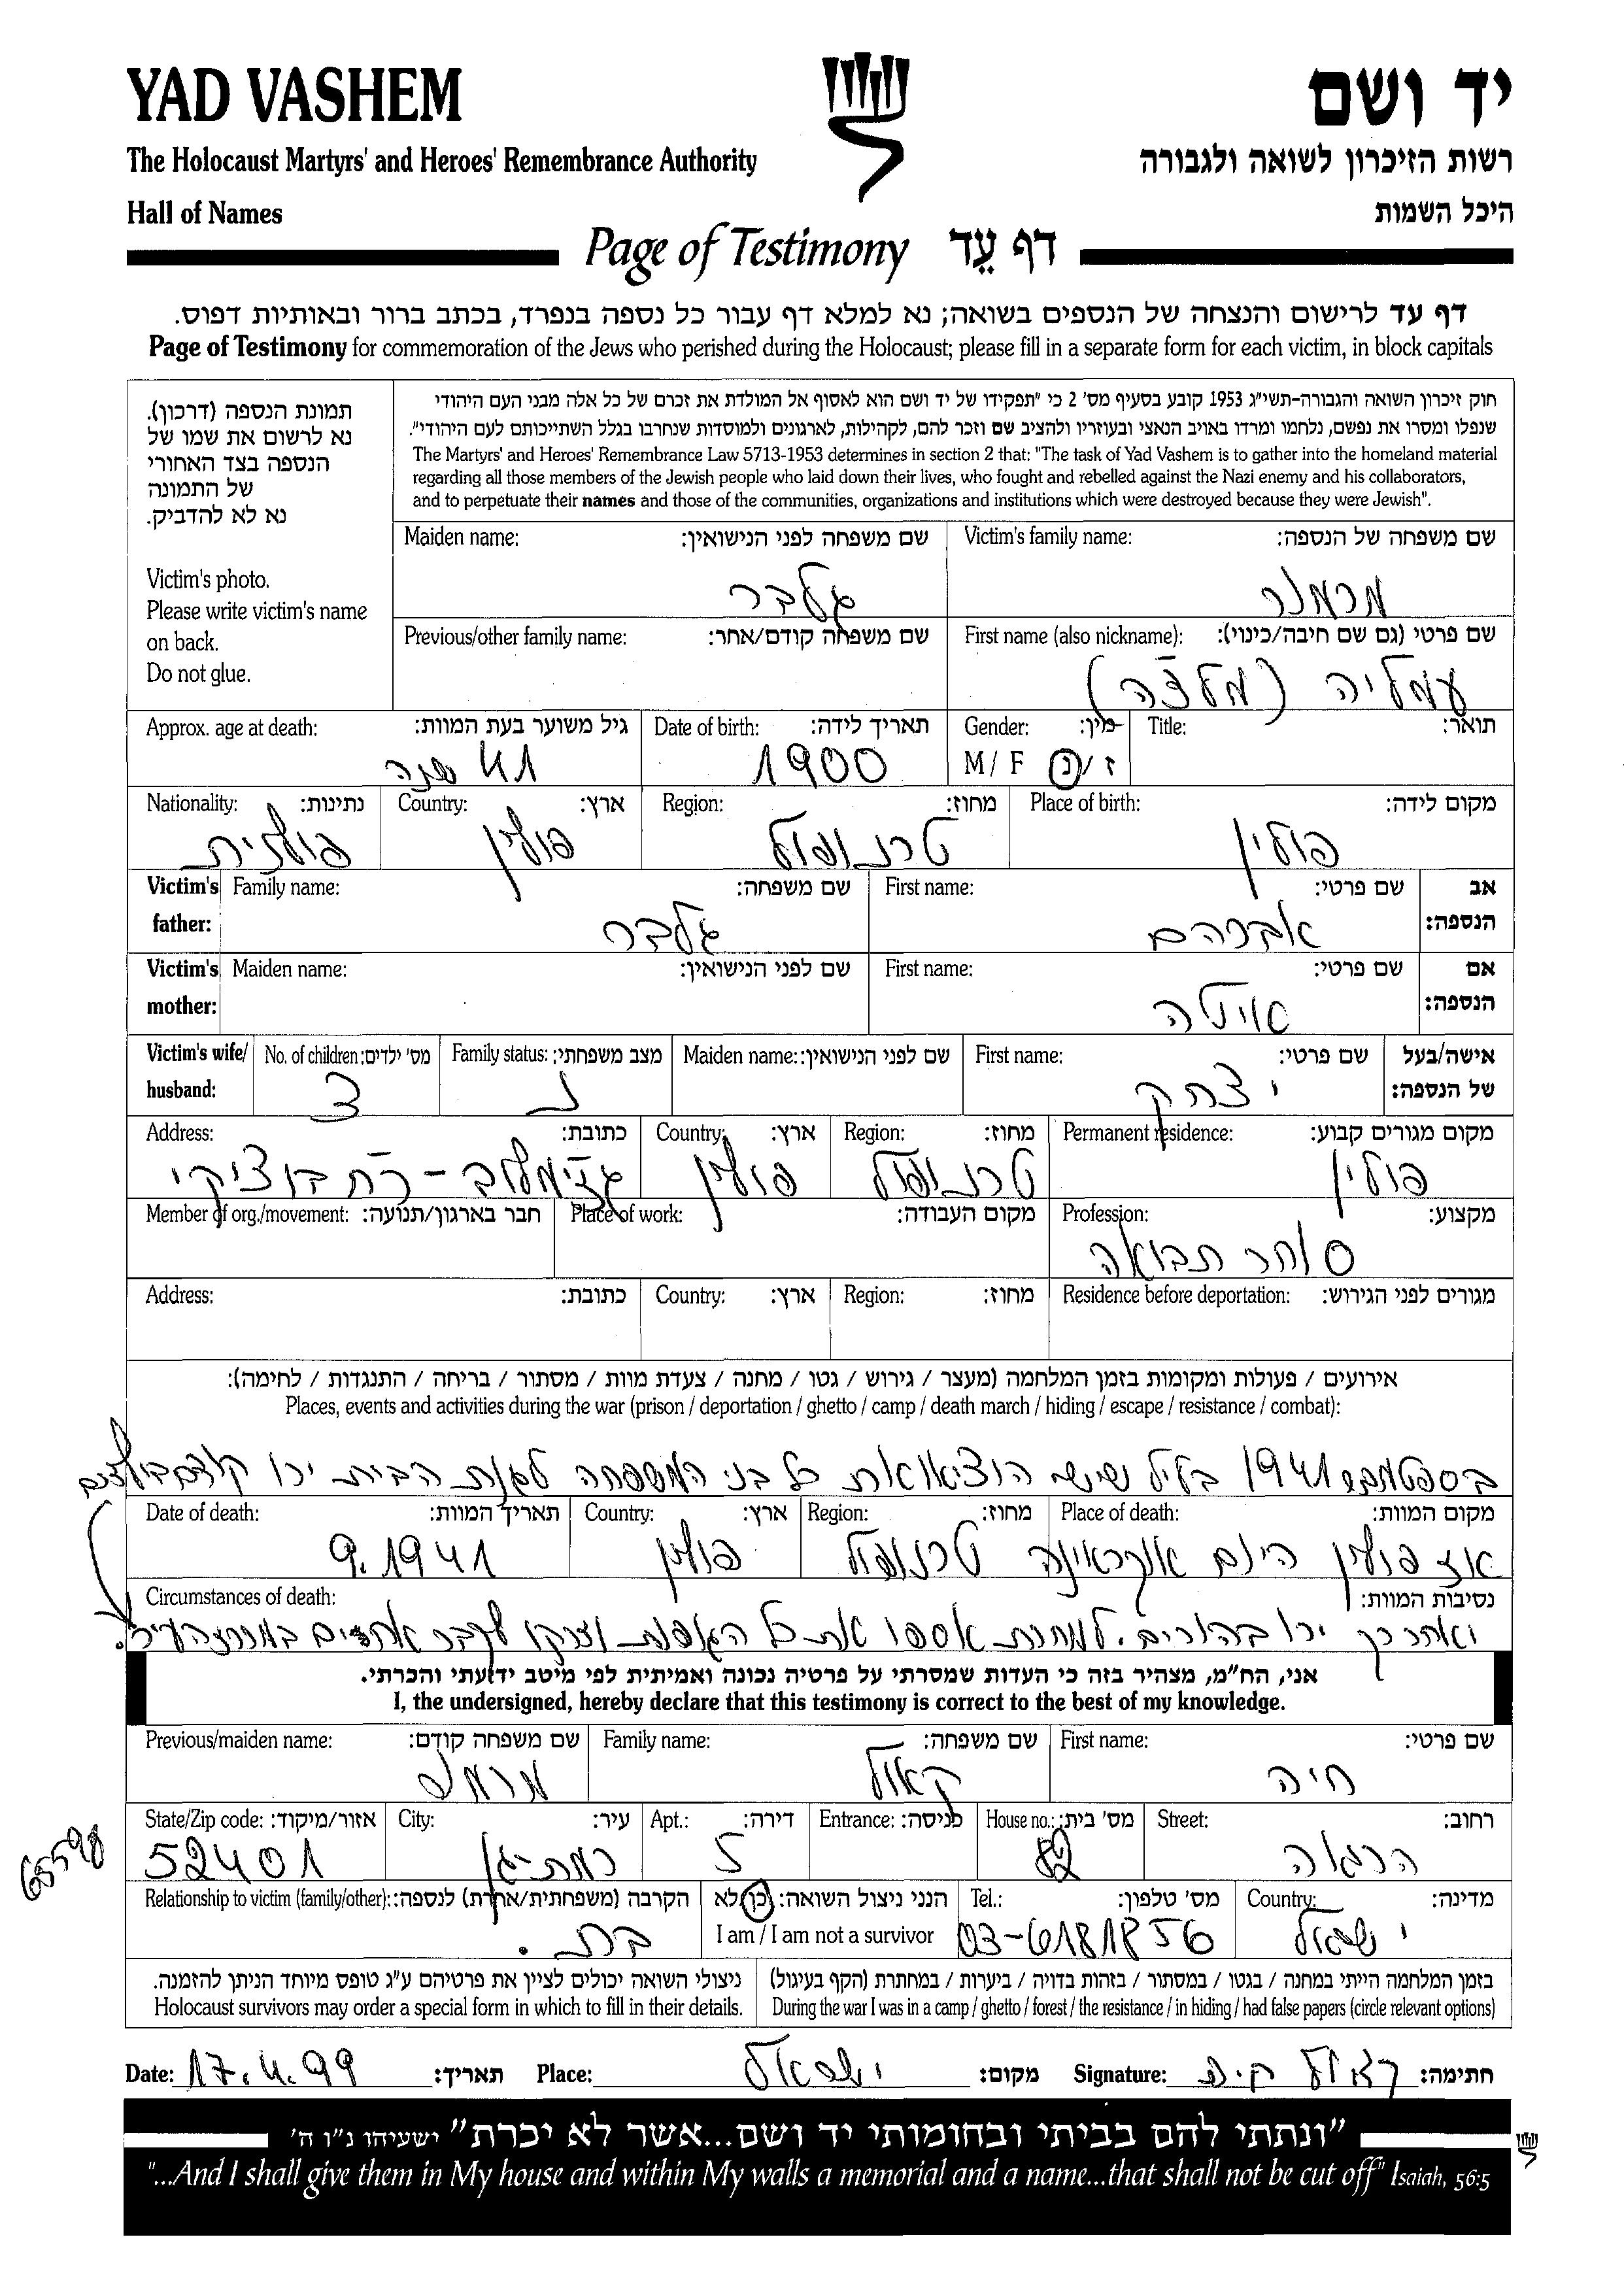 YAD VASHEM
יד ושם
The Holocaust Martyrs' and Heroes' Remembrance Authority
רשות הזיכרון לשואה ולגבורה
Hall of Names
היכל השמות
Page of Testimony דף עֵד
דף עד לרישום והנצחה של הנספים בשואה; נא למלא דף עבור כל נספה בנפרד, בכתב ברור ובאותיות דפוס.
Page of Testimony for commemoration of the Jews who perished during the Holocaust; please fill in a separate form for each victim, in block capitals
תמונת הנספה (דרכון).
נא לרשום את שמו של
הנספה בצד האחורי
של התמונה
נא לא להדביק.
Victim's photo.
Please write victim's name
on back.
Do not glue.
חוק זיכרון השואה והגבורה-תשי"ג 1953 קובע בסעיף מס' 2 כי "תפקידו של יד ושם הוא לאסוף אל המולדת את זכרם של כל אלה מבני העם היהודי
שנפלו ומסרו את נפשם, נלחמו ומרדו באויב הנאצי ובעוזריו ולהציב שם וזכר להם, לקהילות, לארגונים ולמוסדות שנחרבו בגלל השתייכותם לעם היהודי".
The Martyrs' and Heroes' Remembrance Law 5713-1953 determines in section 2 that: "The task of Yad Vashem is to gather into the homeland material
regarding all those members of the Jewish people who laid down their lives, who fought and rebelled against the Nazi enemy and his collaborators,
and to perpetuate their names and those of the communities, organizations and institutions which were destroyed because they were Jewish".
Victim's family name: שם משפחה של הנספה: Maiden name: שם משפחה לפני הנישואין:
גלבר
First name (also nickname): שם פרטי (גם שם חיבה/כינוי): Previous/other family name: שם משפחה קודם/אחר:
עמליה (מלצ'ה)
Title: תואר: Gender: מין: Date of birth: תאריך לידה: Approx. age at death: גיל משוער בעת המוות:
M / F ז / נ 1900 41 שנה
Place of birth: מקום לידה: Region: מחוז: Country: ארץ: Nationality: נתינות:
פולין טרנופול פולין פולנית
Victim's father: אב הנספה: First name: שם פרטי: Family name: שם משפחה:
אברהם גלבר
Victim's mother: אם הנספה: First name: שם פרטי: Maiden name: שם לפני הנישואין:
איטה
Victim's wife/ husband: אישה/בעל של הנספה: First name: שם פרטי: Maiden name: שם לפני הנישואין: Family status: מצב משפחתי: No. of children: מס' ילדים:
יצחק נ 3
Permanent residence: מקום מגורים קבוע: Region: מחוז: Country: ארץ: Address: כתובת:
פולין טרנופול פולין
Profession: מקצוע: Place of work: מקום העבודה: Member of org./movement: חבר בארגון/תנועה:
סוחר תבואה
Residence before deportation: מגורים לפני הגירוש: Region: מחוז: Country: ארץ: Address: כתובת:
אירועים / פעולות ומקומות בזמן המלחמה (מעצר / גירוש / גטו / מחנה / צעדת מוות / מסתור / בריחה / התנגדות / לחימה):
Places, events and activities during the war (prison / deportation / ghetto / camp / death march / hiding / escape / resistance / combat):
בספטמבר 1941 בליל שישי הוציאו את כל בני המשפחה לגנת הבית ירו קודם בילדים
Place of death: מקום המוות: Region: מחוז: Country: ארץ: Date of death: תאריך המוות:
אז פולין היום אוקראינה טרנופול פולין 9.1941
Circumstances of death: נסיבות המוות:
ואחר כך ירו בהורים. למחרת אספו את כל הגופות וזרקו לקבר אחים במרכז העיר.
אני, הח"מ, מצהיר בזה כי העדות שמסרתי על פרטיה נכונה ואמיתית לפי מיטב ידיעתי והכרתי.
I, the undersigned, hereby declare that this testimony is correct to the best of my knowledge.
First name: שם פרטי: Family name: שם משפחה: Previous/maiden name: שם משפחה קודם:
חיה קאול
Street: רחוב: House no.: מס' בית: Entrance: כניסה: Apt.: דירה: City: עיר: State/Zip code: אזור/מיקוד:
הרואה 82 5 רמת-גן 52401
65598
Country: מדינה: Tel.: מס' טלפון: הנני ניצול השואה: כן / לא Relationship to victim (family/other): הקרבה (משפחתית/אחרת) לנספה:
ישראל 03-6181856 I am / I am not a survivor בת.
בזמן המלחמה הייתי במחנה / בגטו / במסתור / בזהות בדויה / ביערות / במחתרת (הקף בעיגול)
During the war I was in a camp / ghetto / forest / the resistance / in hiding / had false papers (circle relevant options)
ניצולי השואה יכולים לציין את פרטיהם ע"ג טופס מיוחד הניתן להזמנה.
Holocaust survivors may order a special form in which to fill in their details.
Date: 17.4.99 תאריך: Place: ישראל מקום: Signature: חתימה:
"ונתתי להם בביתי ובחומותי יד ושם...אשר לא יכרת" ישעיהו נ"ו ה'
"...And I shall give them in My house and within My walls a memorial and a name...that shall not be cut off" Isaiah, 56:5